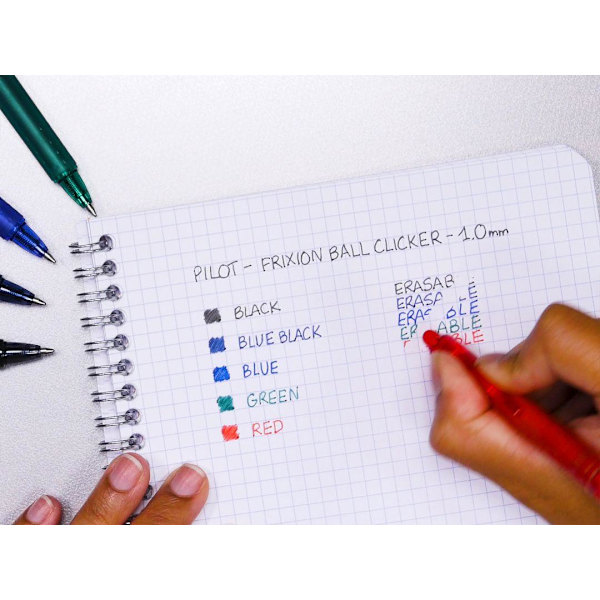 PILOT - FRIXION BALL CLICKER - 1.0mm
BLACK
BLUE BLACK
BLUE
GREEN
RED
ERASAB
ERASA LE
ERAS BLE
ER ABLE
BLE